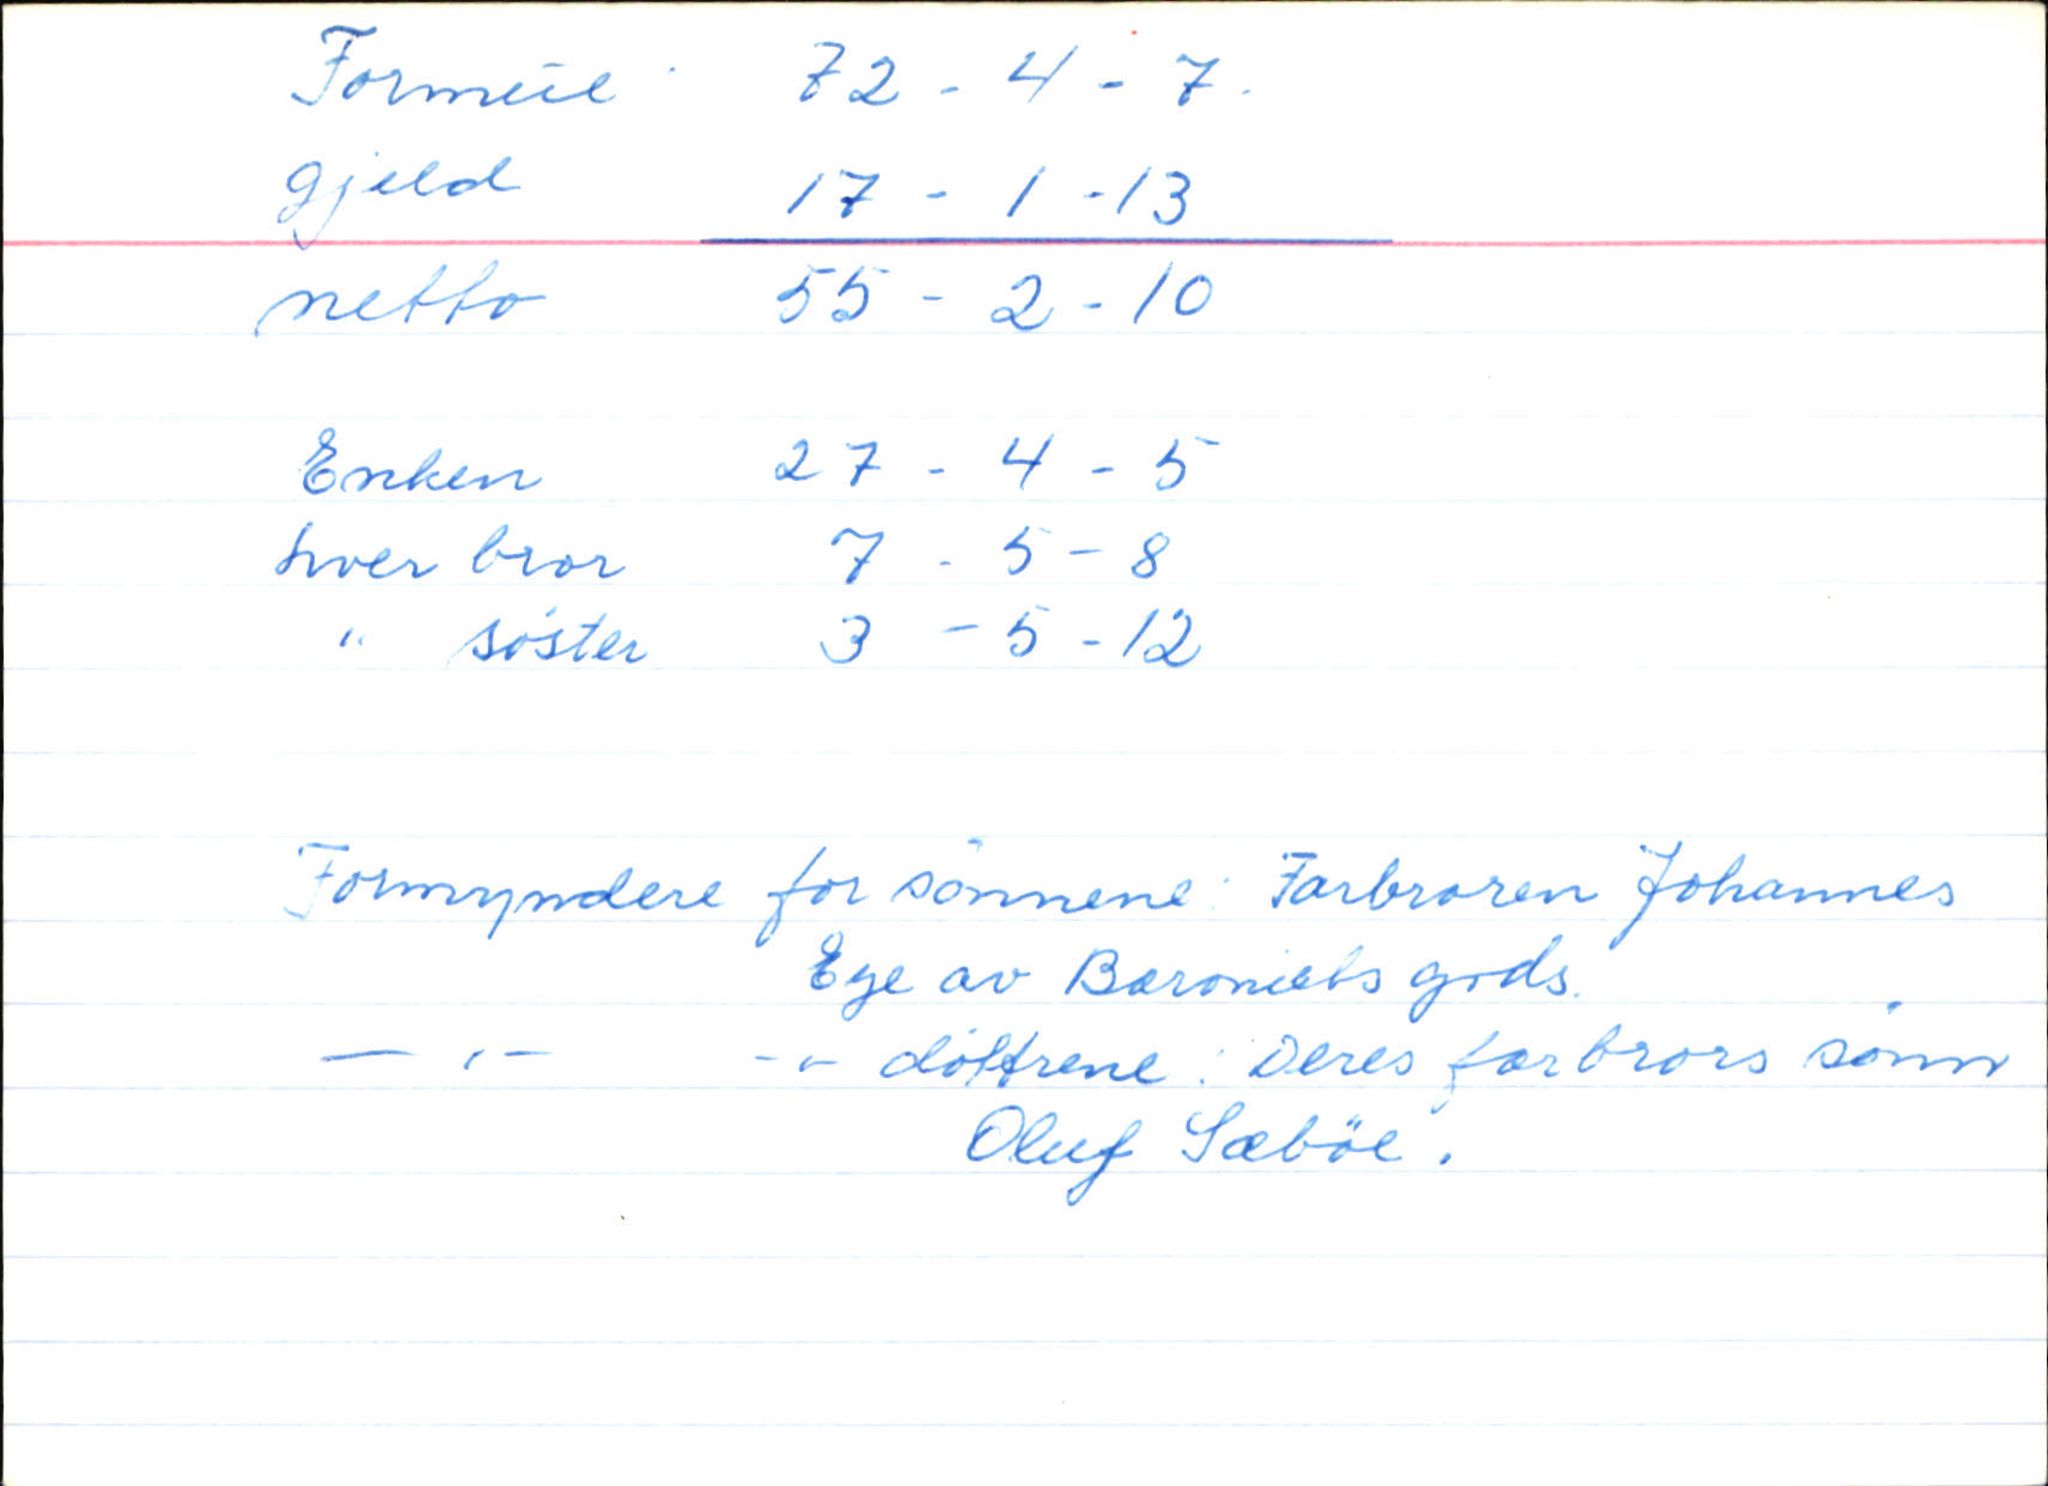 Formue 72 - 4 - 7.
gjeld 17 - 1 - 13
netto 55 - 2 - 10
Enken 27 - 4 - 5
hver bror 7 - 5 - 8
" söster 3 - 5 - 12
Formyndere for sönnene: Farbroren Johannes
Eye av Baroniets gods.
— " — - " - döttrene: Deres farbrors sönn
Oluf Sæböe.